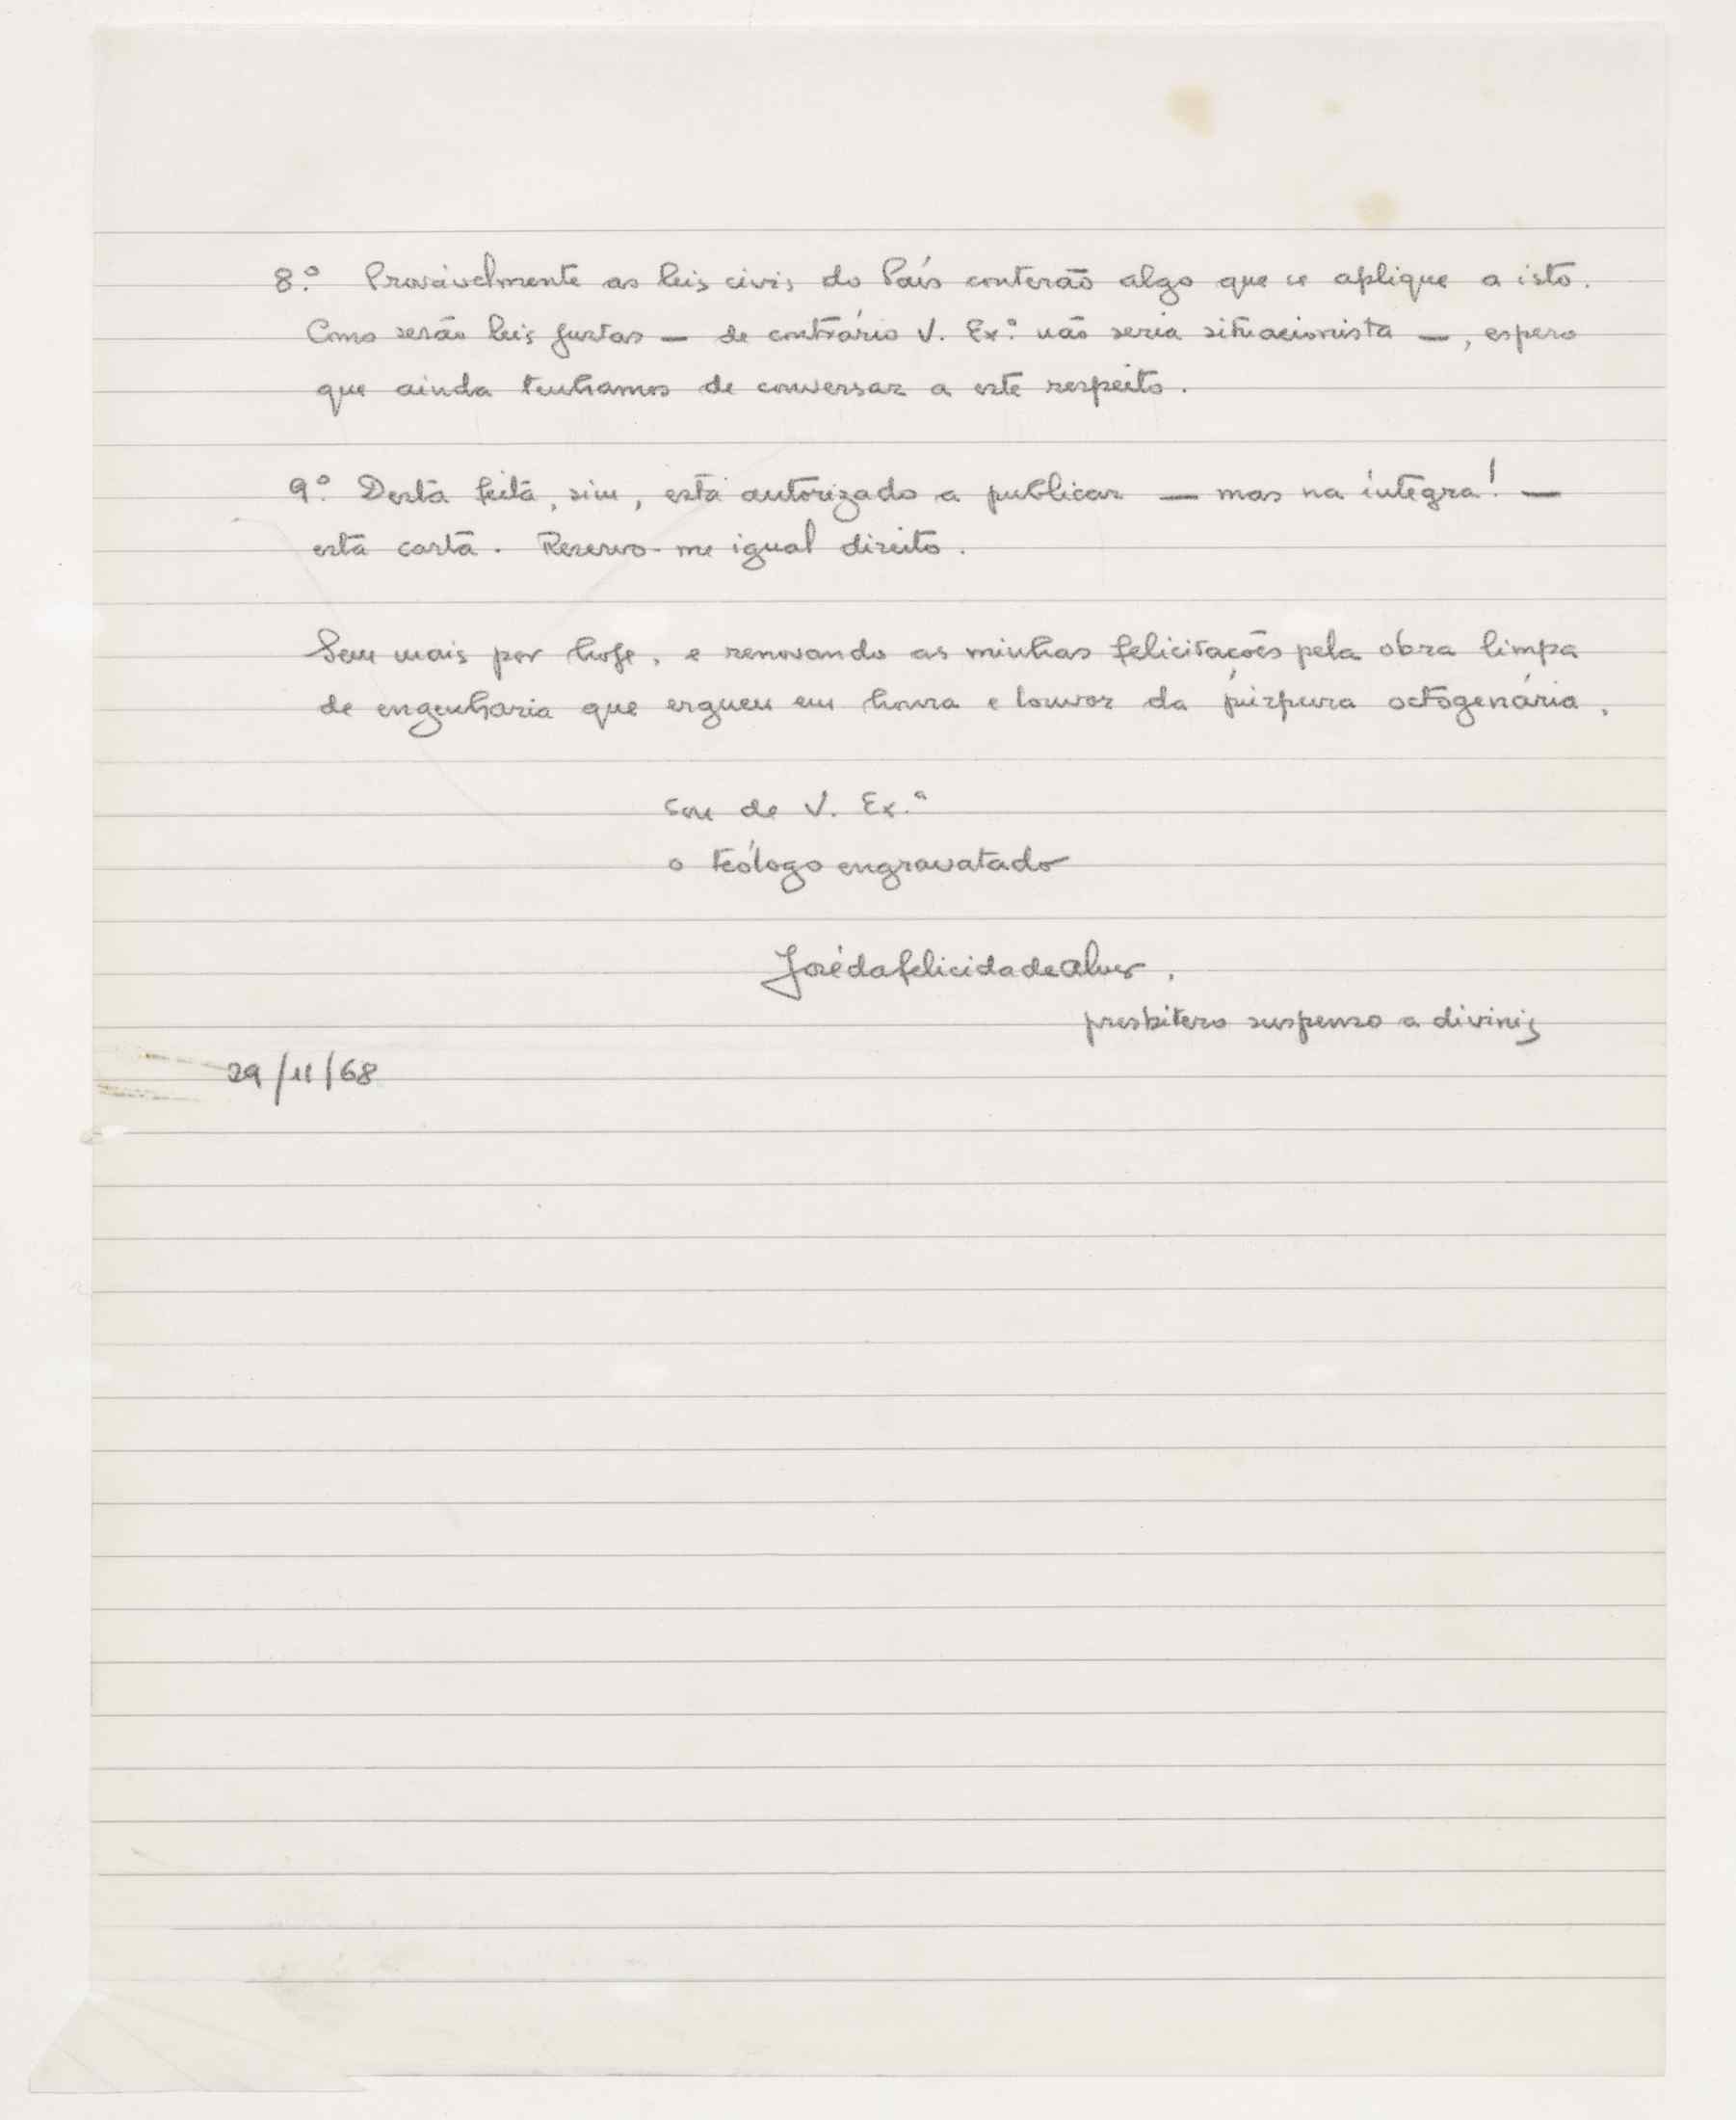 8.º Provàvelmente as leis civis do País conterão algo que se aplique a isto.
Como serão leis justas — de contrário V. Ex.ª não seria situacionista —, espero
que ainda tenhamos de conversar a este respeito.
9.º Desta feita, sim, está autorizado a publicar — mas na íntegra! —
esta carta. Reservo-me igual direito.
Sem mais por hoje, e renovando as minhas felicitações pela obra limpa
de engenharia que ergueu em honra e louvor da púrpura octogenária,
sou de V. Ex.ª
o teólogo engravatado
José da Felicidade Alves,
presbítero suspenso a divinis
29/11/68